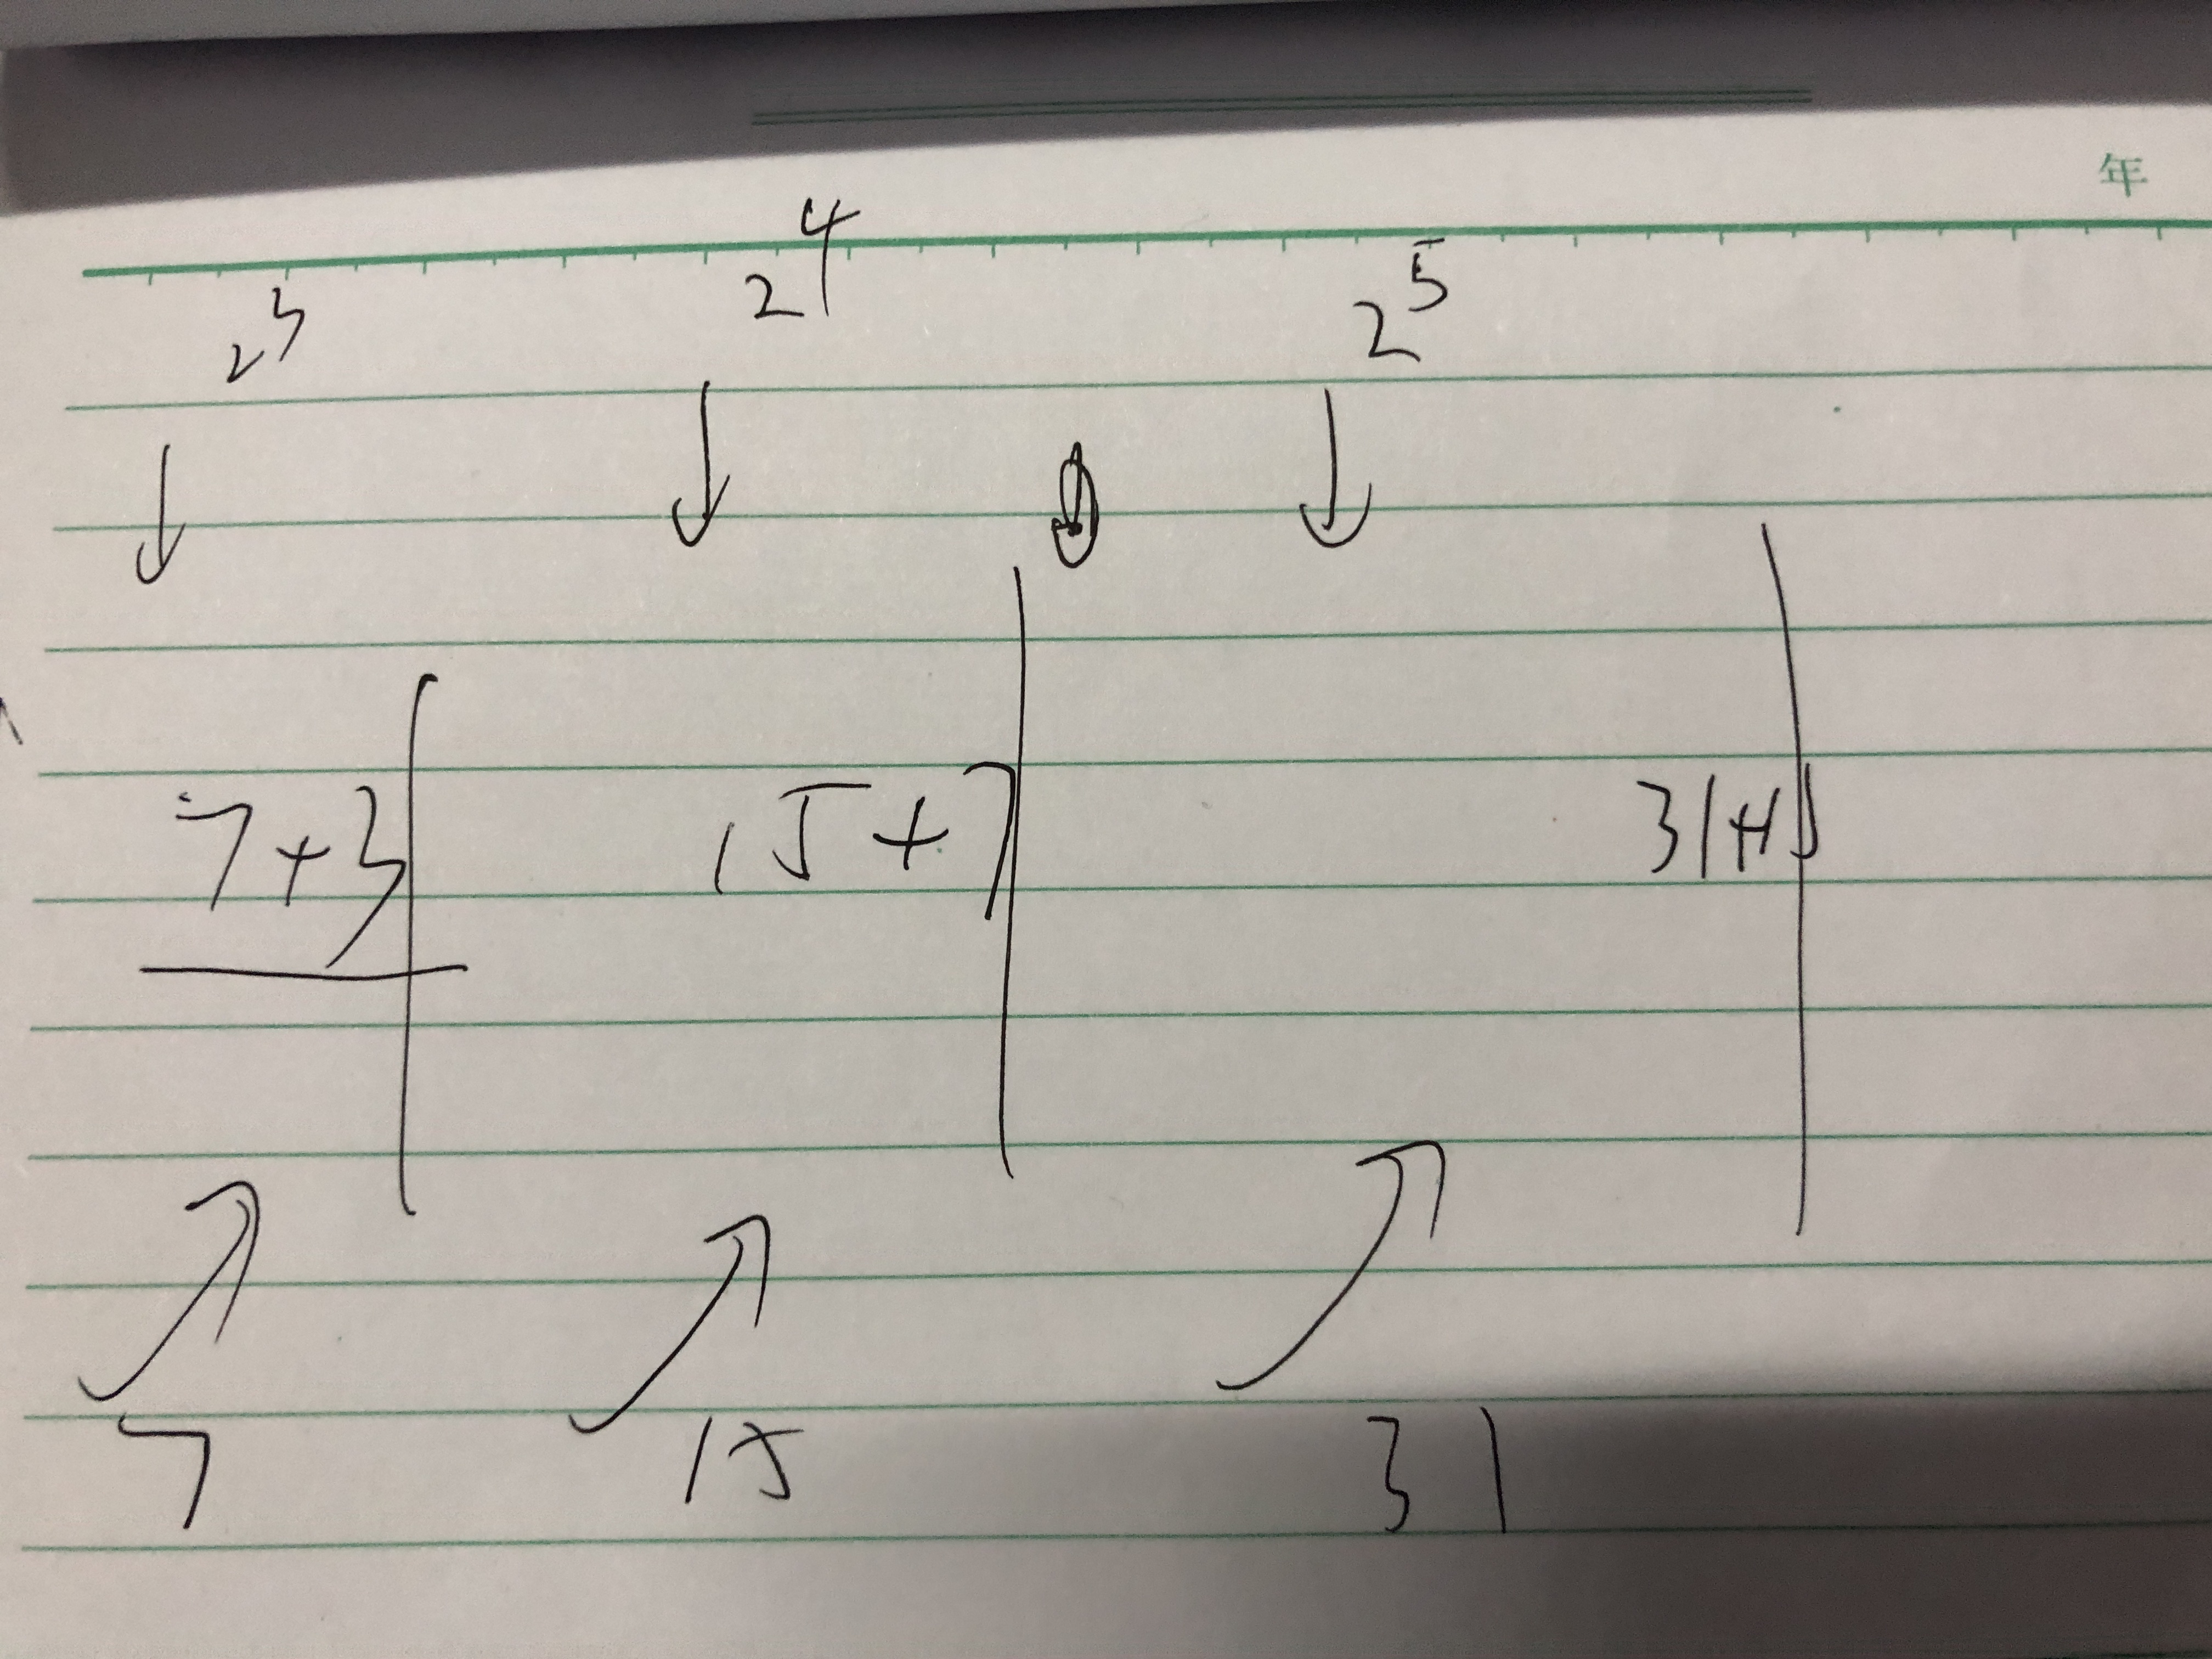 年
2³ 2⁴ 2⁵
7+3 15+7 31+
7 15 31